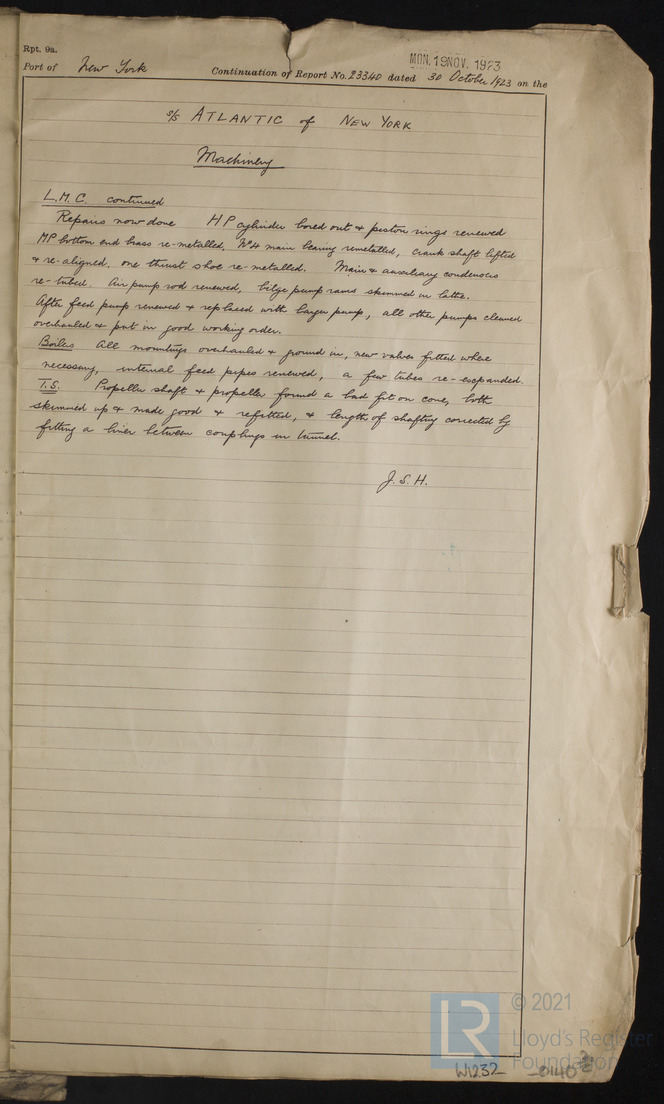 Rpt. 9a.
MON. 19 NOV. 1923
Port of New York Continuation of Report No. 23340 dated 30 October 1923 on the
s/s ATLANTIC of NEW YORK
Machinery
L.M.C. continued
Repairs now done HP cylinder bored out & piston rings renewed
MP bottom end brass re-metalled, No4 main bearing remetalled, crank shaft lifted
& re-aligned, one thrust shoe re-metalled. Main & auxiliary condensers
re-tubed. Air pump rod renewed, bilge pump rams skimmed in lathe.
After feed pump renewed & replaced with larger pump, all other pumps cleaned
overhauled & put in good working order.
Boilers All mountings overhauled & ground in, new valves fitted where
necessary, internal feed pipes renewed, a few tubes re-expanded.
T.S. Propeller shaft & propeller found a bad fit on cone, both
skimmed up & made good & refitted, & length of shafting corrected by
fitting a liner between couplings in tunnel.
J.S.H.
LR
© 2021
Lloyd's Register
Foundation
W1232 -0140